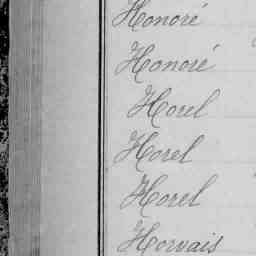 Honoré
Honoré
Horel
Horel
Horel
Horvais